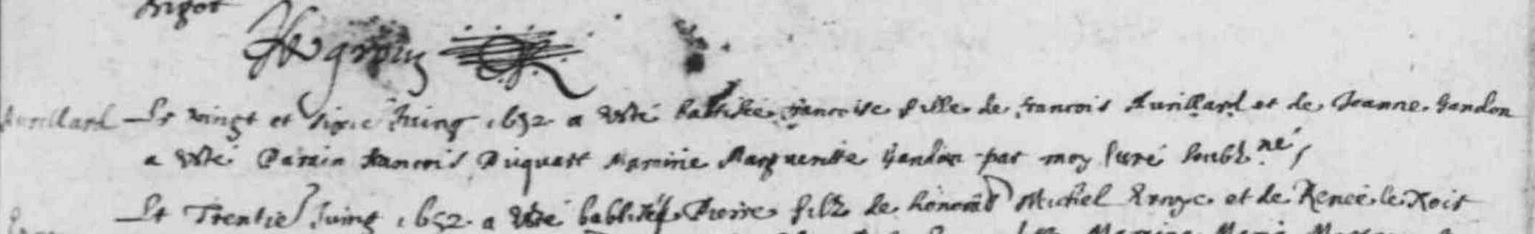 Bigot
Avrillard Le vingt et sixie Juing 1652 a esté baptisée francoise fille de francois Avrillard et de Jeanne Gandon
a esté Parain francois Piquart Maraine Margueritte Gandon par moy Curé soubz.né
Le Trentie Juing 1652 a esté babtisé Pierre filz de honora Michel et de Renée le Roit